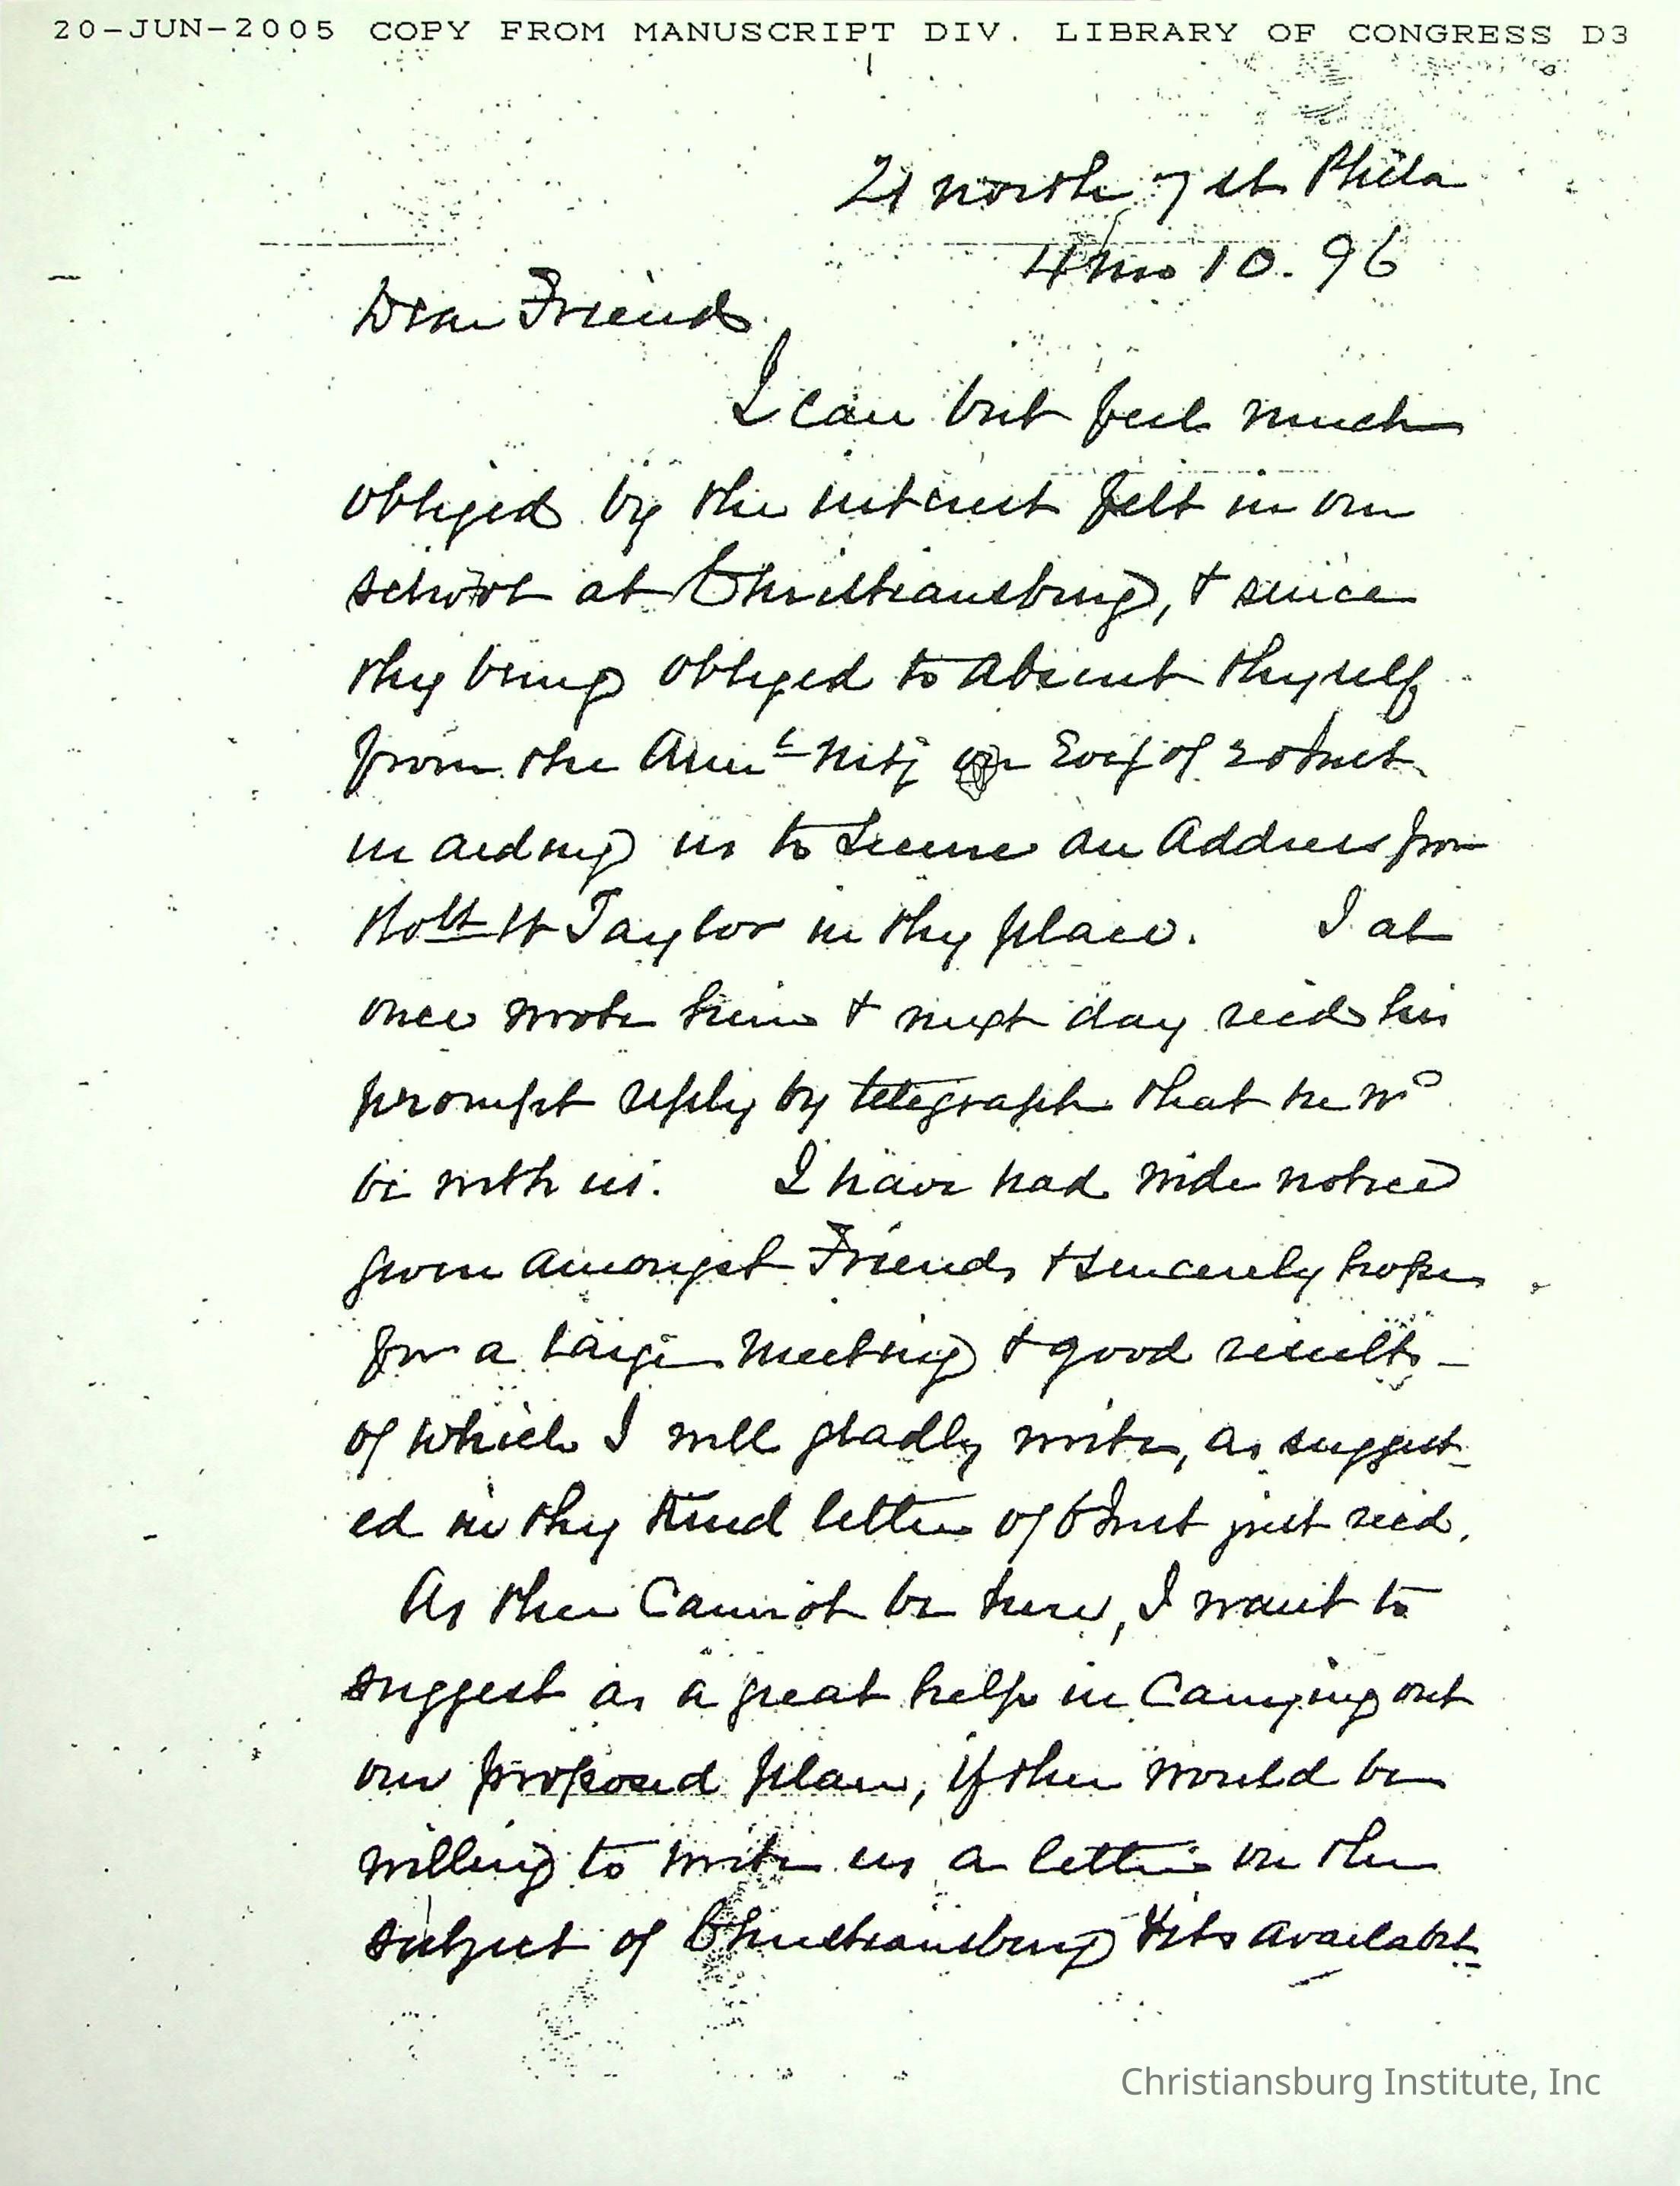 20-JUN-2005 COPY FROM MANUSCRIPT DIV. LIBRARY OF CONGRESS D3
21 north 7 st Phila
4 mo 10. 96
Dear Friend
I can but feel much
obliged by the interest felt in our
school at Christiansburg, & since
thy being obliged to absent thyself
from the Annl Mtg on Evg of 20 Inst
in aiding us to secure an Address from
Robt W Taylor in thy place. I at
once wrote him & next day recd his
prompt reply by telegraph that he wd
be with us. I have had wide notice
given amongst Friends & sincerely hope
for a large meeting & good results -
of which I will gladly write, as suggest-
ed in thy kind letter of 6 Inst just recd.
As thee Cannot be here, I want to
suggest as a great help in Carrying out
our proposed plan, if thee would be
willing to write us a letter on the
subject of Christiansburg & its availabil-
Christiansburg Institute, Inc